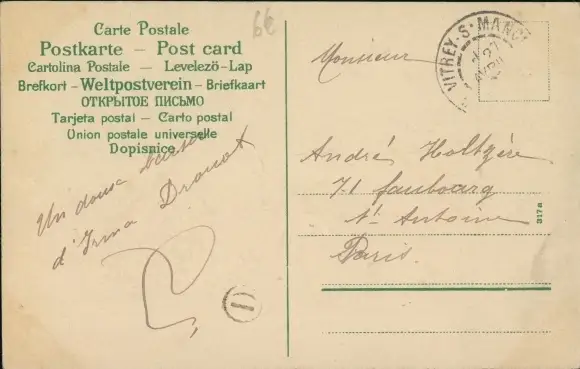 Carte Postale
Postkarte — Post card
Cartolina Postale — Levelező-Lap
Brefkort - Weltpostverein - Briefkaart
ОТКРЫТОЕ ПИСЬМО
Tarjeta postal — Carto postal
Union postale universelle
Dopisnice
6€
Un doux baiser
d'Irma Drouot
1
VITREY-S-MANCE
27
AVRIL
Monsieur
André Holtzère
71 faubourg
St Antoine
Paris.
317a